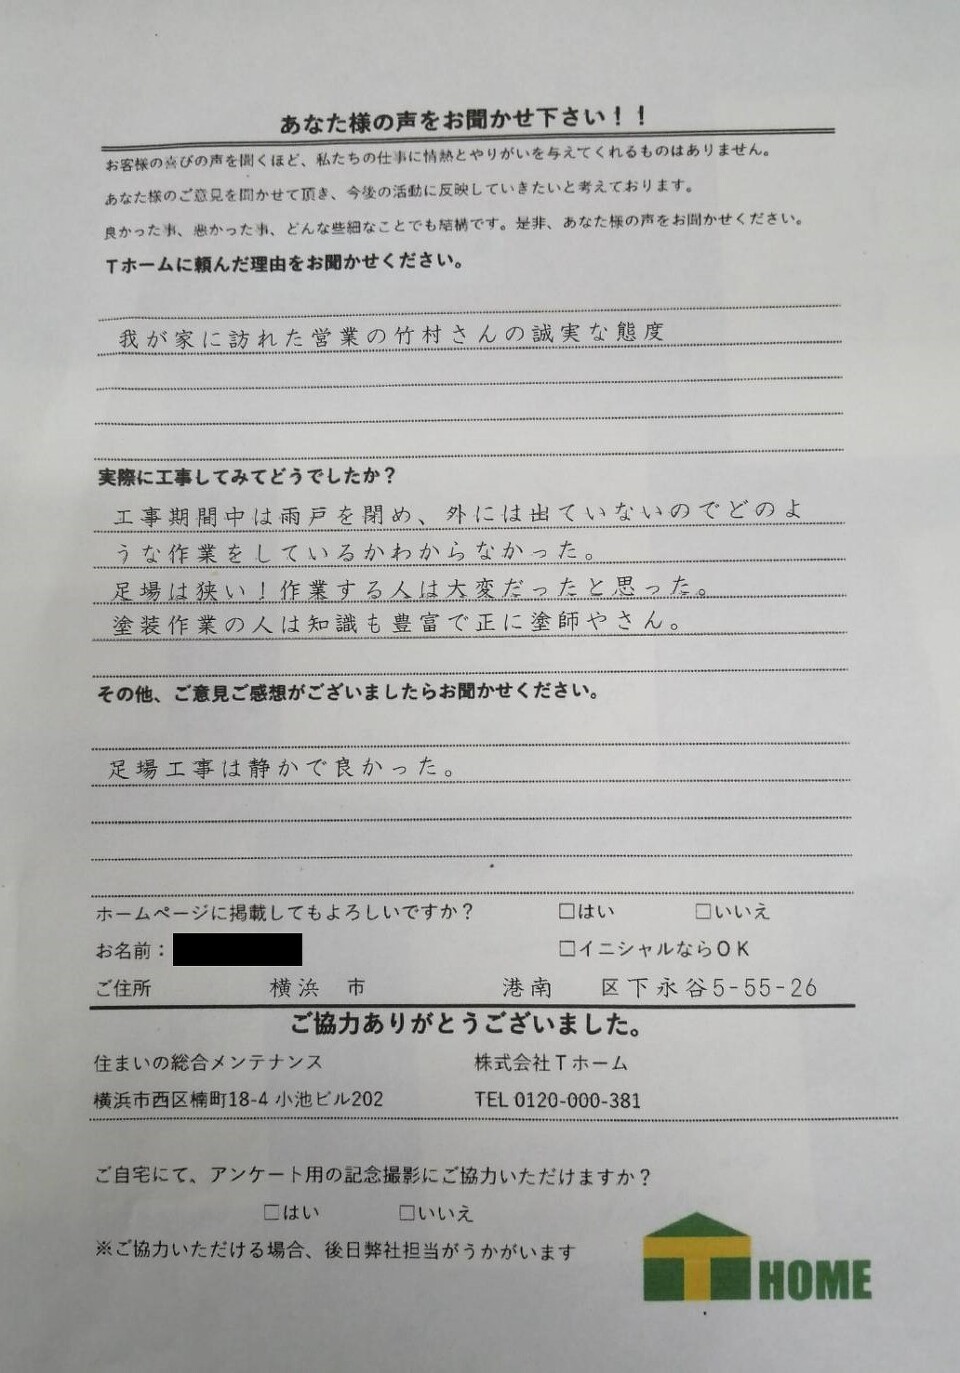 あなた様の声をお聞かせ下さい！！
お客様の喜びの声を聞くほど、私たちの仕事に情熱とやりがいを与えてくれるものはありません。
あなた様のご意見を聞かせて頂き、今後の活動に反映していきたいと考えております。
良かった事、悪かった事、どんな些細なことでも結構です。是非、あなた様の声をお聞かせください。
Tホームに頼んだ理由をお聞かせください。
我が家に訪れた営業の竹村さんの誠実な態度
実際に工事してみてどうでしたか？
工事期間中は雨戸を閉め、外には出ていないのでどのよ
うな作業をしているかわからなかった。
足場は狭い！作業する人は大変だったと思った。
塗装作業の人は知識も豊富で正に塗師やさん。
その他、ご意見ご感想がございましたらお聞かせください。
足場工事は静かで良かった。
ホームページに掲載してもよろしいですか？ □はい □いいえ
お名前： □イニシャルならOK
ご住所 横浜 市 港南 区下永谷5-55-26
ご協力ありがとうございました。
住まいの総合メンテナンス 株式会社Tホーム
横浜市西区楠町18-4 小池ビル202 TEL 0120-000-381
ご自宅にて、アンケート用の記念撮影にご協力いただけますか？
□はい □いいえ
※ご協力いただける場合、後日弊社担当がうかがいます
T HOME